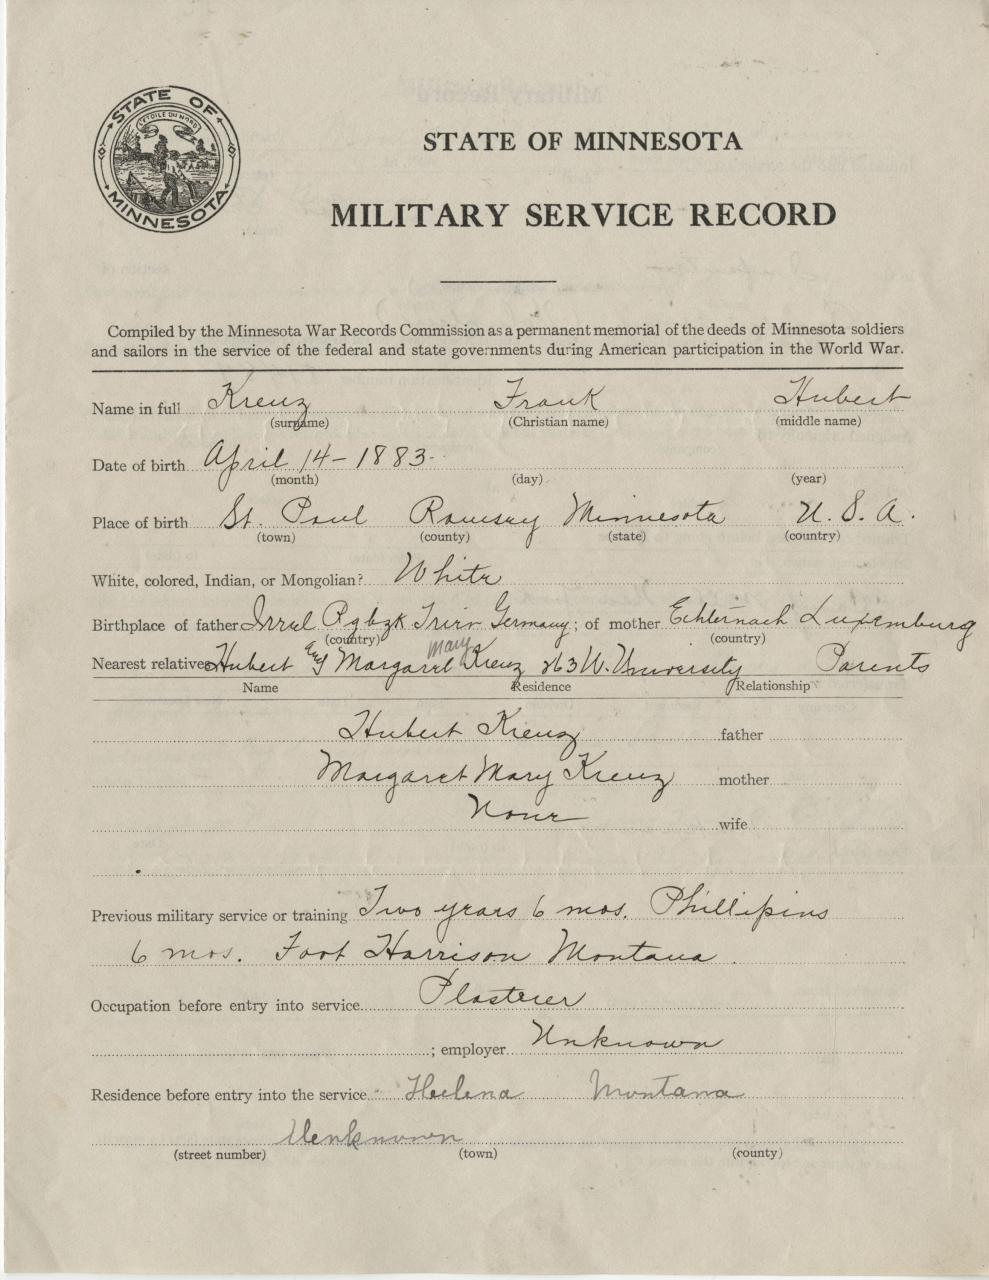 STATE OF MINNESOTA
L'ETOILE DU NORD
STATE OF MINNESOTA
MILITARY SERVICE RECORD
Compiled by the Minnesota War Records Commission as a permanent memorial of the deeds of Minnesota soldiers
and sailors in the service of the federal and state governments during American participation in the World War.
Name in full Kreuz Frank Hubert
(surname) (Christian name) (middle name)
Date of birth April 14 - 1883
(month) (day) (year)
Place of birth St. Paul Ramsey Minnesota U. S. A.
(town) (county) (state) (country)
White, colored, Indian, or Mongolian? White
Birthplace of father Irrel Rgbzk Trier Germany; of mother Echternach Luxemburg
(country) (country)
Mary
Nearest relatives Hubert Margaret Kreuz 263 W. University Parents
Name Residence Relationship
Hubert Kreuz father
Margaret Mary Kreuz mother
None wife
Previous military service or training Two years 6 mos. Phillipins
6 mos. Foot Harrison Montana.
Occupation before entry into service Plasterer
; employer Unknown
Residence before entry into the service Helena Montana
Unknown
(street number) (town) (county)